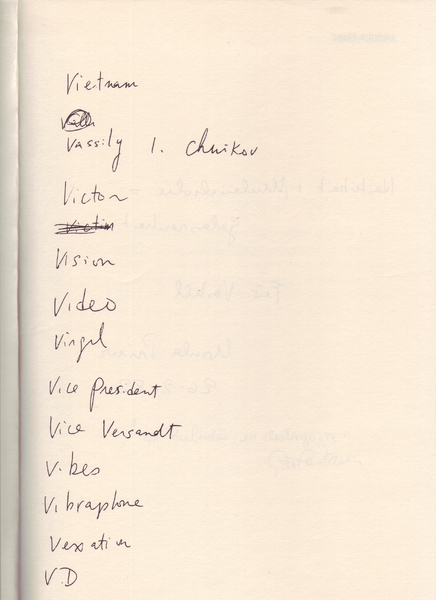 Vietnam
Vassily I. Chuikov
Victor
Victim
Vision
Video
Virgil
Vice President
Vice Versandt
Vibes
Vibraphone
Vexation
V.D